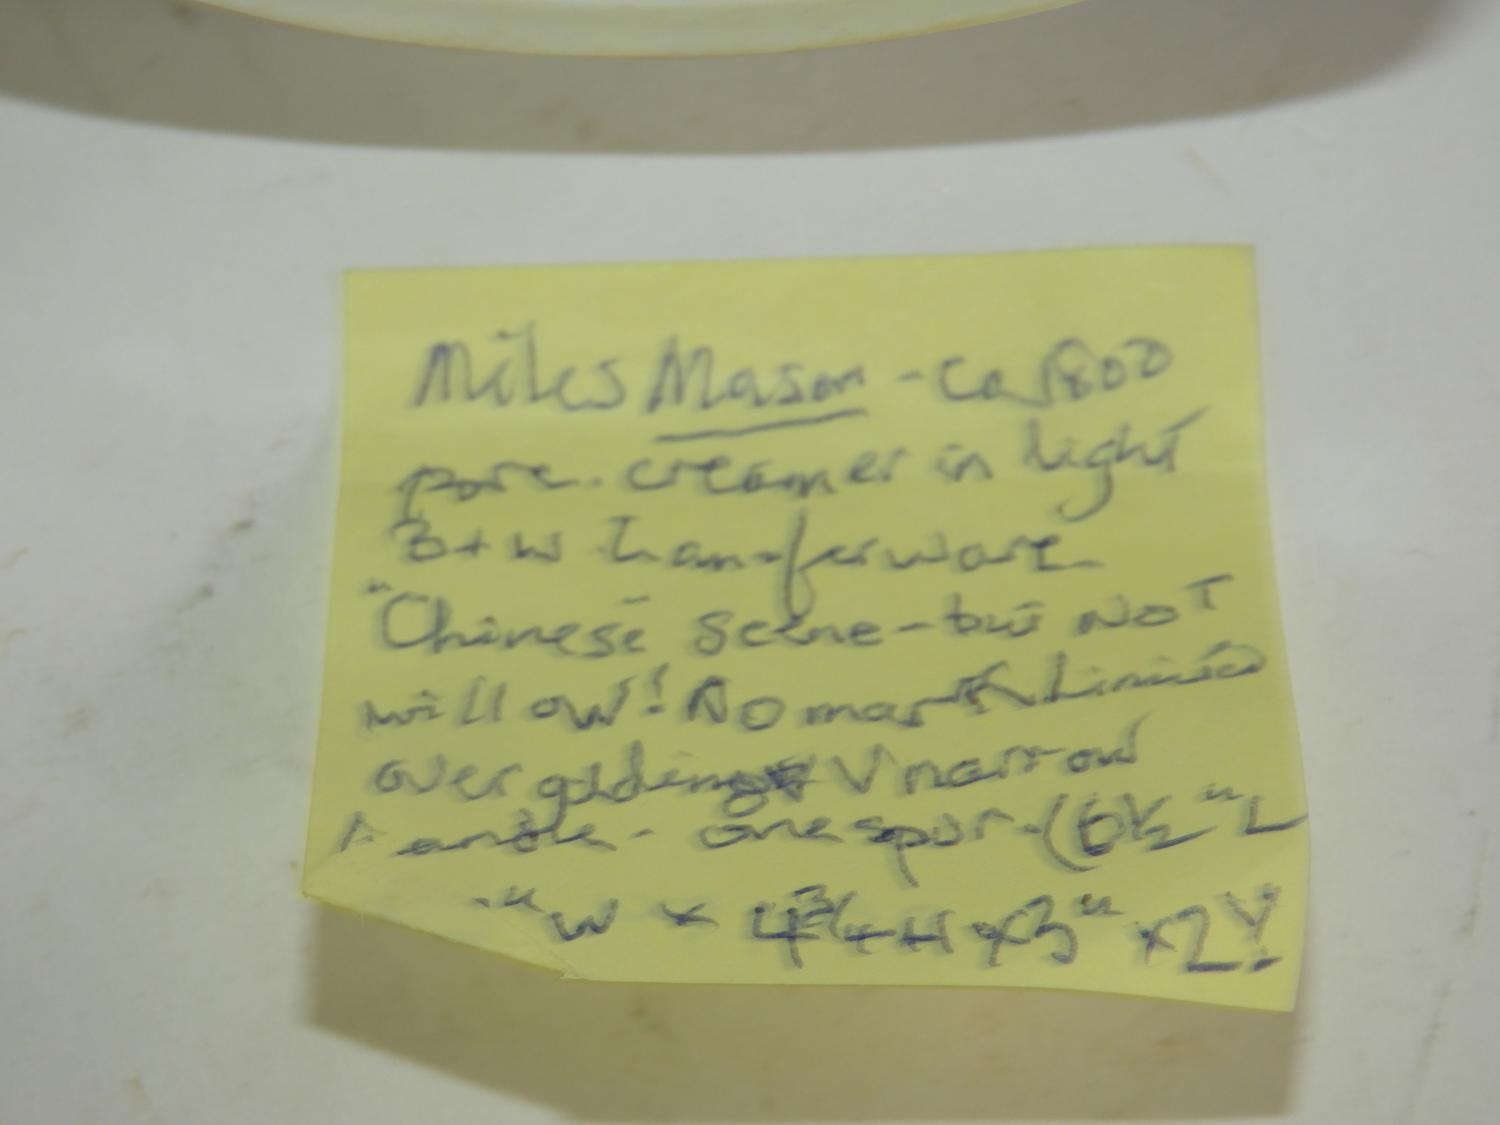 Miles Mason - Ca 1800
porc. creamer in light
B+W Transferware
"Chinese" scene - but NOT
willow! No mark Limited
over gilding V narrow
handle - one spur - (6½" L
" W x 4¾ H x 3" x 2